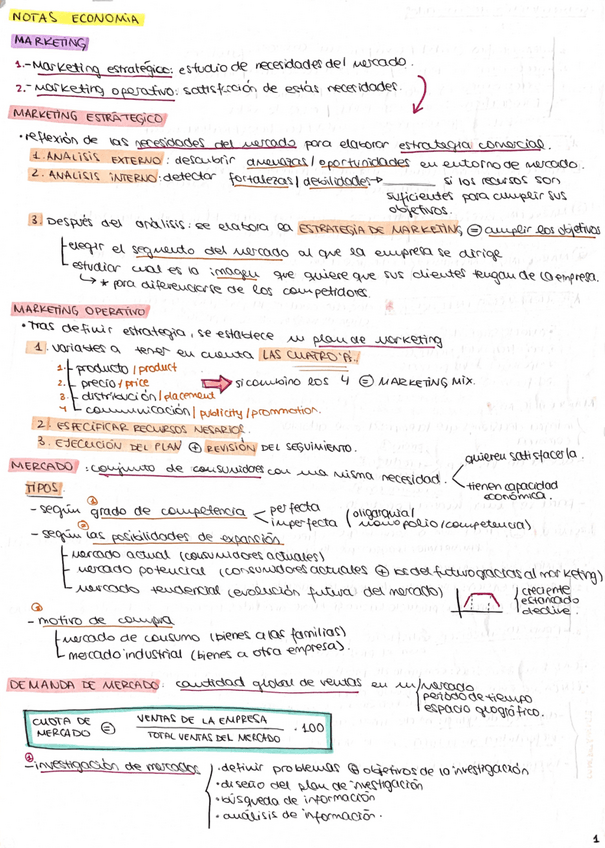 NOTAS ECONOMIA
MARKETING
1.- Marketing estratégico: estudio de necesidades del mercado.
2.- Marketing operativo: satisfacción de estás necesidades.
MARKETING ESTRATEGICO
• reflexión de las necesidades del mercado para elaborar estrategia comercial.
1. ANALISIS EXTERNO: descubrir amenazas/oportunidades en entorno de mercado.
2. ANALISIS INTERNO: detectar fortalezas/debilidades → ______ si los recursos son
suficientes para cumplir sus
objetivos.
3. Después del análisis: se elabora la ESTRATEGIA DE MARKETING = cumplir los objetivos
elegir el segmento del mercado al que la empresa se dirige
estudiar cual es la imagen que quiere que sus clientes tengan de la empresa.
↳ * para diferenciarse de los competidores *
MARKETING OPERATIVO
• Tras definir estrategia, se establece un plan de marketing
1. variables a tener en cuenta LAS CUATRO "P".
1.- producto/product
2.- precio/price ⇒ si combino los 4 = MARKETING MIX.
3.- distribución/placement
4.- comunicación/publicity/prommotion.
2. ESPECIFICAR RECURSOS NESARIOS.
3. EJECUCIÓN DEL PLAN + REVISIÓN DEL SEGUIMIENTO.
MERCADO: conjunto de consumidores con una misma necesidad. < quieren satisfacerla.
tienen capacidad
económica.
TIPOS.
① - según grado de competencia < perfecta
imperfecta (oligarquia/
monopolio/competencia)
② - según las posibilidades de expansión
mercado actual (consumidores actuales)
mercado potencial (consumidores actuales + los del futuro gracias al marketing)
mercado tendencial (evolución futura del mercado)
creciente
estancado
declive.
③ - motivo de compra
mercado de consumo (bienes a las familias)
mercado industrial (bienes a otra empresa).
DEMANDA DE MERCADO: cantidad global de ventas en un
mercado
periodo de tiempo
espacio geográfico.
CUOTA DE MERCADO = VENTAS DE LA EMPRESA / TOTAL VENTAS DEL MERCADO · 100
- investigación de mercados
• definir problemas + objetivos de la investigación
• diseño del plan de investigación
• búsqueda de información
• análisis de información.
1